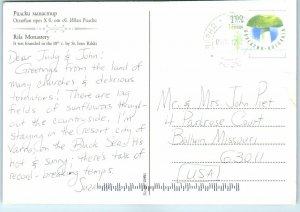 Рилски манастир
Основан през X в. от св. Иван Рилски
Rila Monastery
It was founded in the 10th c. by St. Ivan Rilski
Dear Judy & John:
Greetings from the land of
many churches & delicious
tomatoes! There are big
fields of sunflowers through-
out the country-side. I'm
staying in the resort city of
Varna, on the Black Sea. It's
hot & sunny; there's talk of
record-breaking temps.
1.00
Mr. & Mrs. John Piet
4 Parkrose Court
Ballwin, Missouri
63011
(USA)